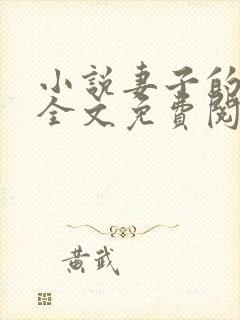 小説妻子的
全文免費閱
黃武